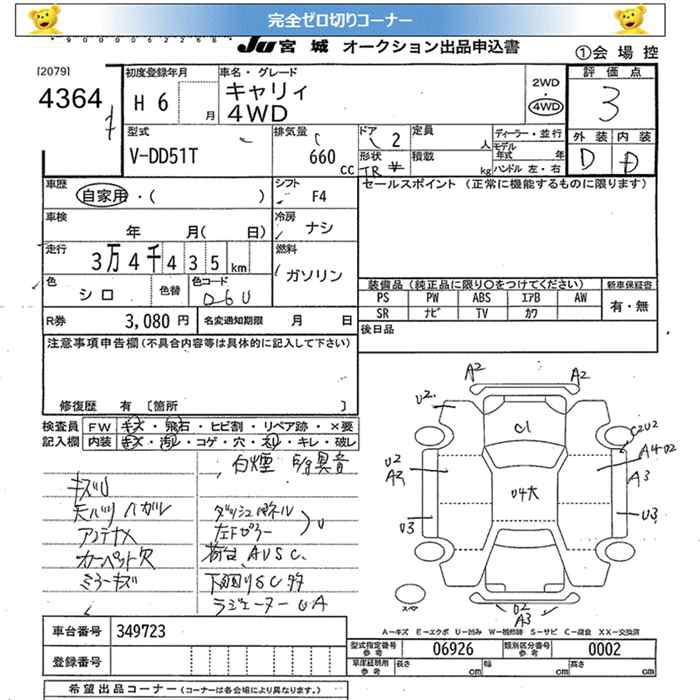 完全ゼロ切りコーナー
JU 宮城 オークション出品申込書
①会場控
[2079]
4364
初度登録年月
H6 月
車名・グレード
キャリィ
4WD
2WD
・
4WD
評価点
3
外装 内装
D D
型式
V-DD51T
排気量
660 cc
ドア 2
形状 TR
定員 人
積載 kg
ディーラー・並行
モデル年式 年
ハンドル 左・右
車歴
自家用・( )
シフト
F4
セールスポイント (正常に機能するものに限ります)
車検
年 月( 日)
冷房
ナシ
走行
3万4千435km
燃料
ガソリン
色
シロ
色替
色コード
26U
装備品 (純正品に限り○をつけてください)
新車保証書
PS PW ABS エアB AW
SR ナビ TV カワ
有・無
R券 3,080円
名変通知期限 月 日
後日品
注意事項申告欄(不具合内容等は具体的に記入して下さい)
修復歴 有 〔箇所 〕
検査員記入欄
FW キズ・飛石・ヒビ割・リペア跡・×要
内装 キズ・汚レ・コゲ・穴・スレ・キレ・破レ
白煙 E/g異音
キズU
天バリハガレ
アンテナX
カーペット欠
ミラーキズ
ダッシュパネル
左Fピラー
U
荷台AUSC.
下廻りSC多
ラジエーターUA
A2 A2
U2
C1
C2U2
U2
A2
U4大
A4U2
A3
U3 U3
スペア
U2
A3
A-キズ E-エクボ U-凹み W-補修跡 S-サビ C-腐食 XX-交換済
車台番号 349723
登録番号
型式指定番号 参考 06926
類別区分番号 参考 0002
車庫証明用 参考
長さ cm
幅 cm
高さ cm
希望出品コーナー (コーナーは各会場により異なります。)